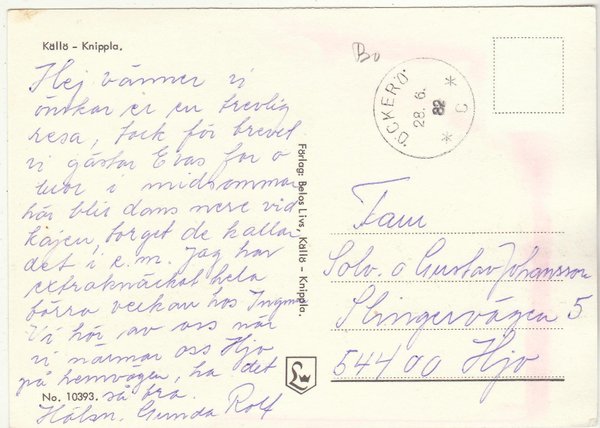 Källö - Knippla.
Hej vänner vi
önskar er en trevlig
resa, tack för brevet
vi gästar Evas far o
mor i midsommar
här blir dans nere vid
kajen, torget de kallar
det i e.m. Jag har
extraknäckat hela
förra veckan hos Ingmar
Vi hör av oss när
vi närmar oss Hjo
på hemvägen, ha det
så bra.
Hälsn. Gunda Rolf
No. 10393.
Förlag: Belos Livs, Källö - Knippla.
Bo
ÖCKERÖ
28. 6. 82
* C *
Fam
Solv. o Gustav Johansson
Slingervägen 5
54400 Hjo
L